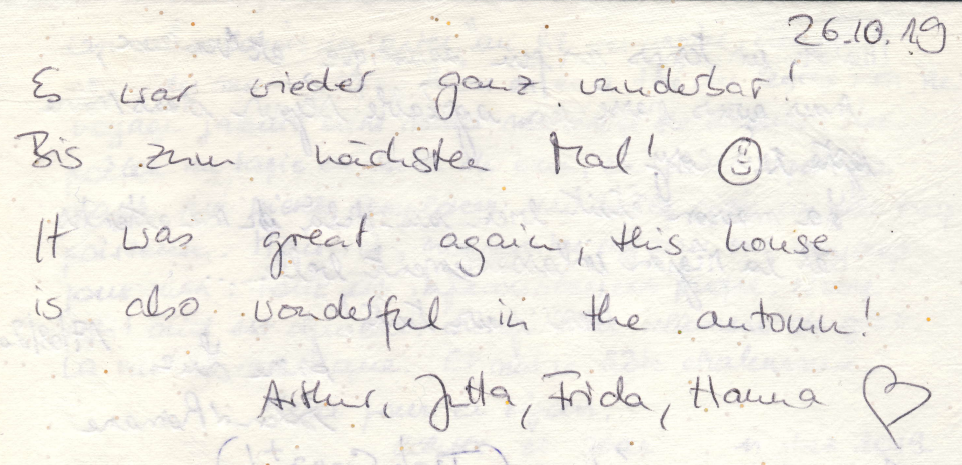 26.10.19
Es war wieder ganz wunderbar!
Bis zum nächsten Mal! ☺
It was great again, this house
is also wonderful in the automn!
Arthur, Jutta, Frida, Hanna ♡